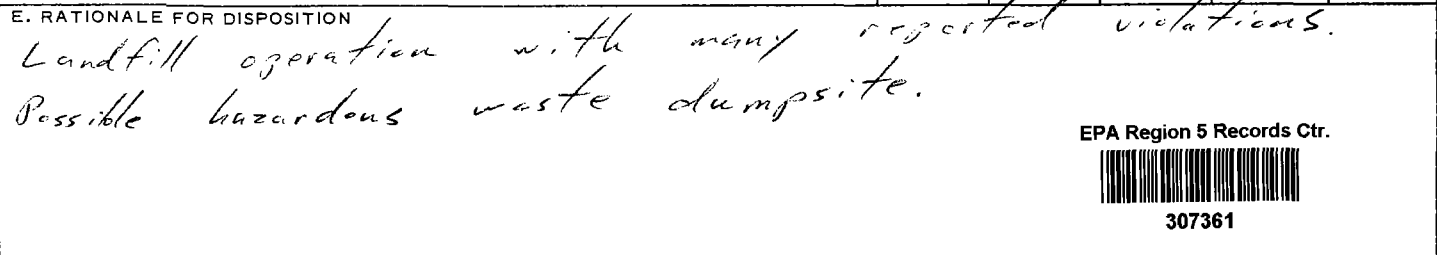 E. RATIONALE FOR DISPOSITION
Landfill operation with many reported violations.
Possible hazardous waste dumpsite.
EPA Region 5 Records Ctr.
307361